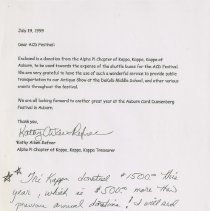 July 19, 1999
Dear ACD Festival:
Enclosed is a donation from the Alpha Pi Chapter of Kappa, Kappa, Kappa of
Auburn, to be used towards the expense of the shuttle buses for the ACD Festival.
We are very grateful to have the use of such a wonderful service to provide public
transportation to our Antique Show at the DeKalb Middle School, and other various
events throughout the festival.
We are all looking forward to another great year at the Auburn Cord Duesenberg
Festival in Auburn.
Thank you,
Kathy
Alpha Pi Chapter of Kappa, Kappa, Kappa Treasurer
Tri Kappa donated $1500 this
year, which is $500 more than
previous annual donations! I will send